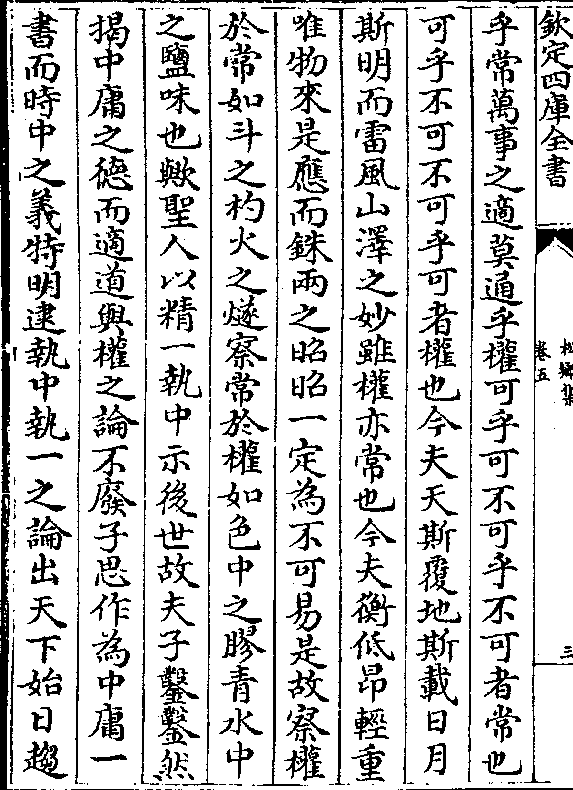 欽定四庫全書
松鄉集
卷五
三
乎常萬事之適莫適乎權可乎可不可乎不可者常也
可乎不可不可乎可者權也今夫天斯覆地斯載日月
斯明而雷風山澤之妙雖權亦常也今夫衡低昂輕重
唯物來是應而銖兩之昭昭一定為不可易是故察權
於常如斗之杓火之燧察常於權如色中之膠青水中
之鹽味也歟聖人以精一執中示後世故夫子鑿鑿然
揭中庸之德而適道與權之論不廢子思作為中庸一
書而時中之義特明逮執中執一之論出天下始日趨